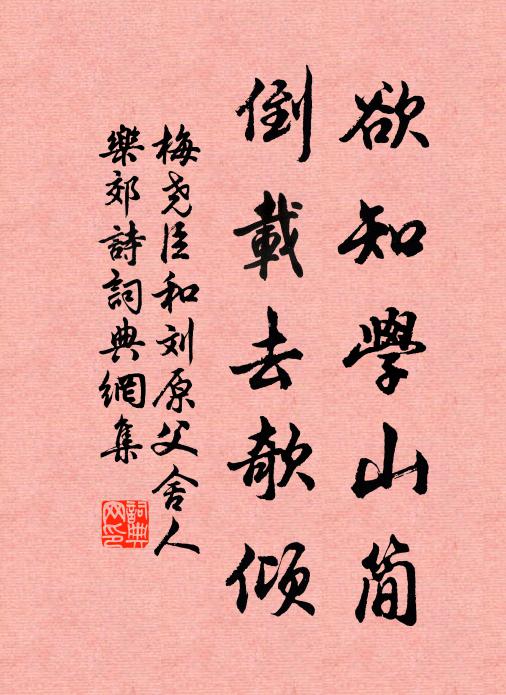 欲知學山简
倒載去欹倾
梅尧臣和刘原父舍人
樂郊詩詞典網集
詞典网印